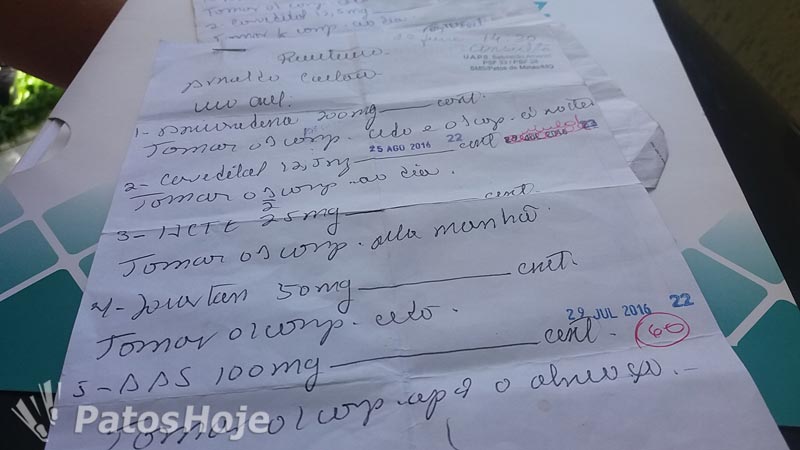 Tomar 01 comp. ao dia
2 carvedilol 12,5mg
Tomar ½ comp. ao dia
Consulta
U.A.P.S. Sebastião Amorim
PSF 33 / PSF 28
SMS/Patos de Minas/MG
Receituário
Arnaldo
uso
1- 200mg cont.
Tomar 01 comp. cedo e 01 comp. à noite
25 AGO 2016 22
29 JUL 2016 22
2- carvedilol 12,5mg cont
Tomar 01/2 comp. ao dia.
3- HCTZ 25mg cont.
Tomar 01 comp. pela manhã.
4- Losartan 50mg cont.
Tomar 01 comp. cedo.
29 JUL 2016 22
5- AAS 100mg cont. 60
Tomar 01 comp. após o almoço.
PatosHoje